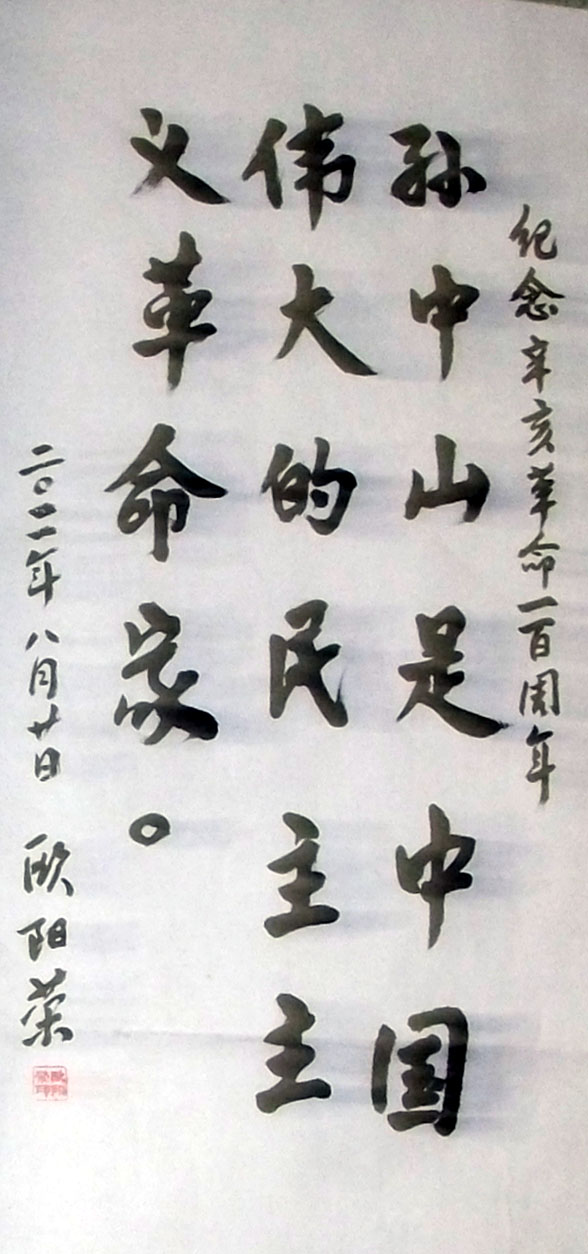 纪念辛亥革命一百周年
孙中山是中国
伟大的民主主
义革命家。
二〇一一年八月廿日 欧阳荣